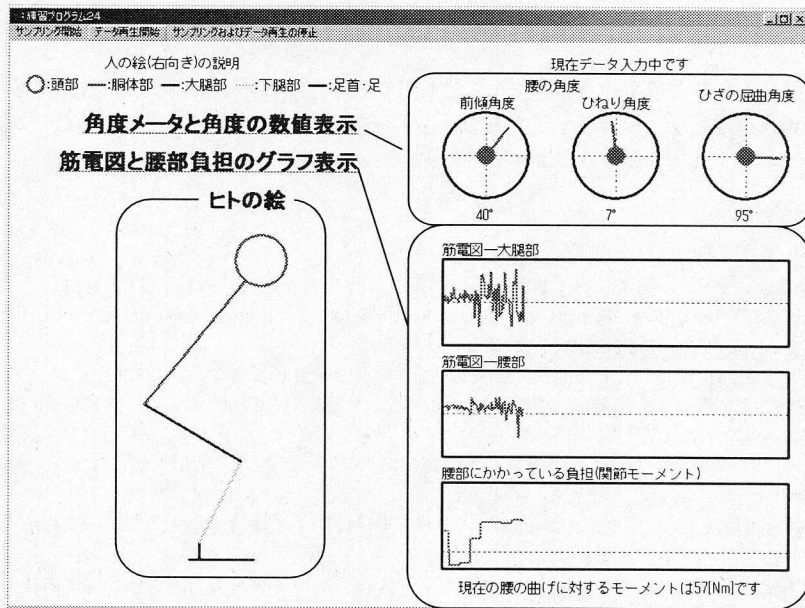 :練習プログラム24
サンプリング開始 データ再生開始 サンプリングおよびデータ再生の停止
人の絵(右向き)の説明
:頭部 :胴体部 :大腿部 :下腿部 :足首・足
角度メータと角度の数値表示
筋電図と腰部負担のグラフ表示
ヒトの絵
現在データ入力中です
腰の角度
前傾角度 ひねり角度 ひざの屈曲角度
40° 7° 95°
筋電図―大腿部
筋電図―腰部
腰部にかかっている負担(関節モーメント)
現在の腰の曲げに対するモーメントは57[Nm]です